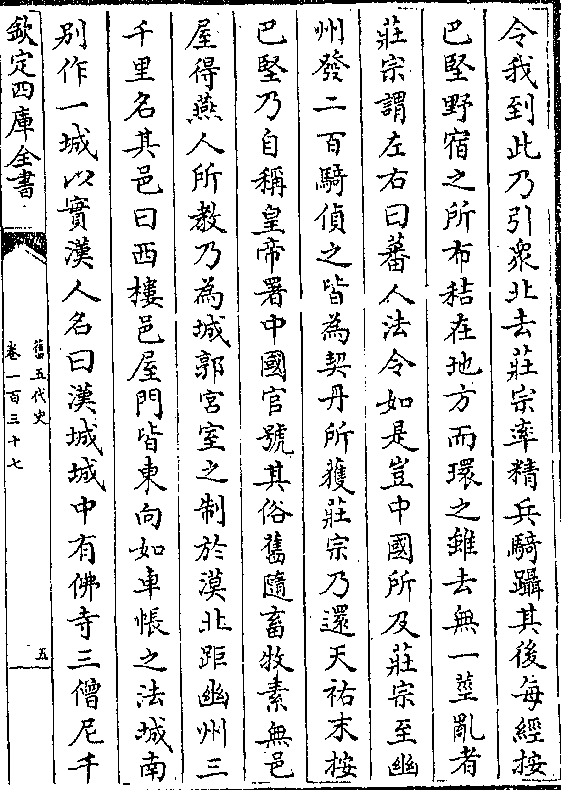 令我到此乃引衆北去莊宗率精兵騎躡其後每經按
巴堅野宿之所布秸在地方而環之雖去無一莖亂者
莊宗謂左右曰蕃人法令如是豈中國所及莊宗至幽
州發二百騎偵之皆為契丹所獲莊宗乃還天祐末按
巴堅乃自稱皇帝署中國官號其俗舊隨畜牧素無邑
屋得燕人所教乃為城郭宮室之制於漠北距幽州三
千里名其邑曰西樓邑屋門皆東向如車帳之法城南
別作一城以實漢人名曰漢城城中有佛寺三僧尼千
欽定四庫全書
舊五代史
卷一百三十七
五